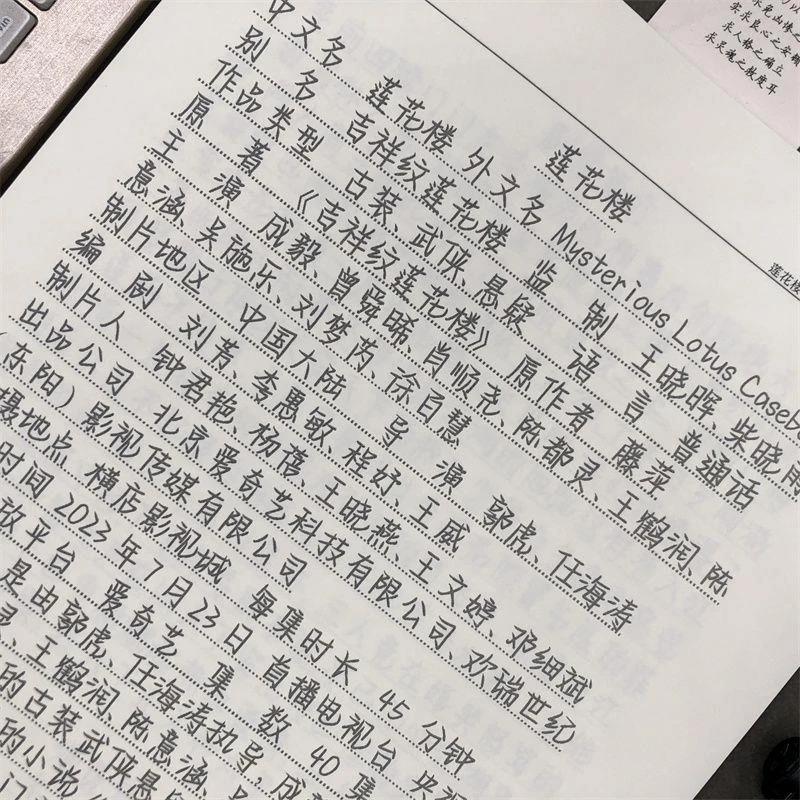 莲花楼
中文名 莲花楼 外文名 Mysterious Lotus Caseb
别名 吉祥纹莲花楼 监制 王晓晖、柴晓
作品类型 古装、武侠、悬疑 语言 普通话
原著 《吉祥纹莲花楼》 原作者 藤萍
主演 成毅、曾舜晞、肖顺尧、陈都灵、王鹤润、陈
意涵、吴施乐、刘梦芮、徐百慧
制片地区 中国大陆 导演 郭虎、任海涛
编剧 刘芳、李惠敏、程妤、王威
制片人 钟君艳、杨蓓、王晓燕、王文婷、邓细斌
出品公司 北京爱奇艺科技有限公司、欢瑞世纪
(东阳)影视传媒有限公司
摄地点 横店影视城 每集时长 45 分钟
时间 2023年7月23日 首播电视台 央视
放平台 爱奇艺 集数 40集
是由郭虎、任海涛执导,成
灵、王鹤润、陈意涵、
的古装武侠悬
的小说
门
莲花楼
求良心之安
求人格之确立
求灵魂之救度耳